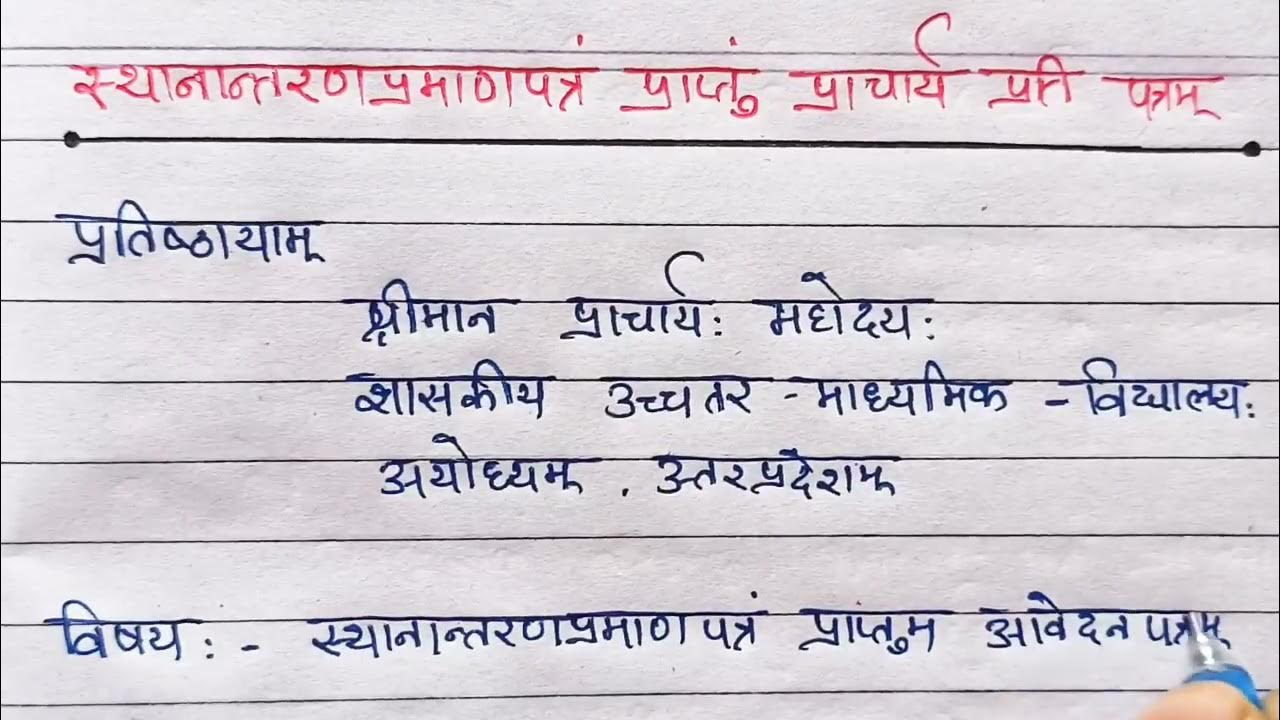 स्थानान्तरणप्रमाणपत्रं प्राप्तुं प्राचार्य प्रति पत्रम्
प्रतिष्ठायाम्
श्रीमान प्राचार्यः महोदयः
शासकीय उच्चतर - माध्यमिक - विद्यालयः
अयोध्यम् . उत्तरप्रदेशम्
विषयः - स्थानान्तरणप्रमाणपत्रं प्राप्तुम आवेदनपत्रम्